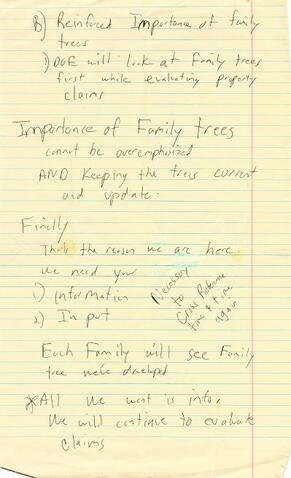 B) Reinforced Importance of family
trees
1) DOE will look at Family trees
first while evaluating property
claims
Importance of Family trees
cannot be overemphasized
AND Keeping the trees current
and update.
Finally
Thats the reason we are here.
We need your
1) information
2) In put
Necessary
to
Cross Reference
time & time
again
Each Family will see Family
tree we've developed
*All we want is info.
We will continue to evaluate
claims